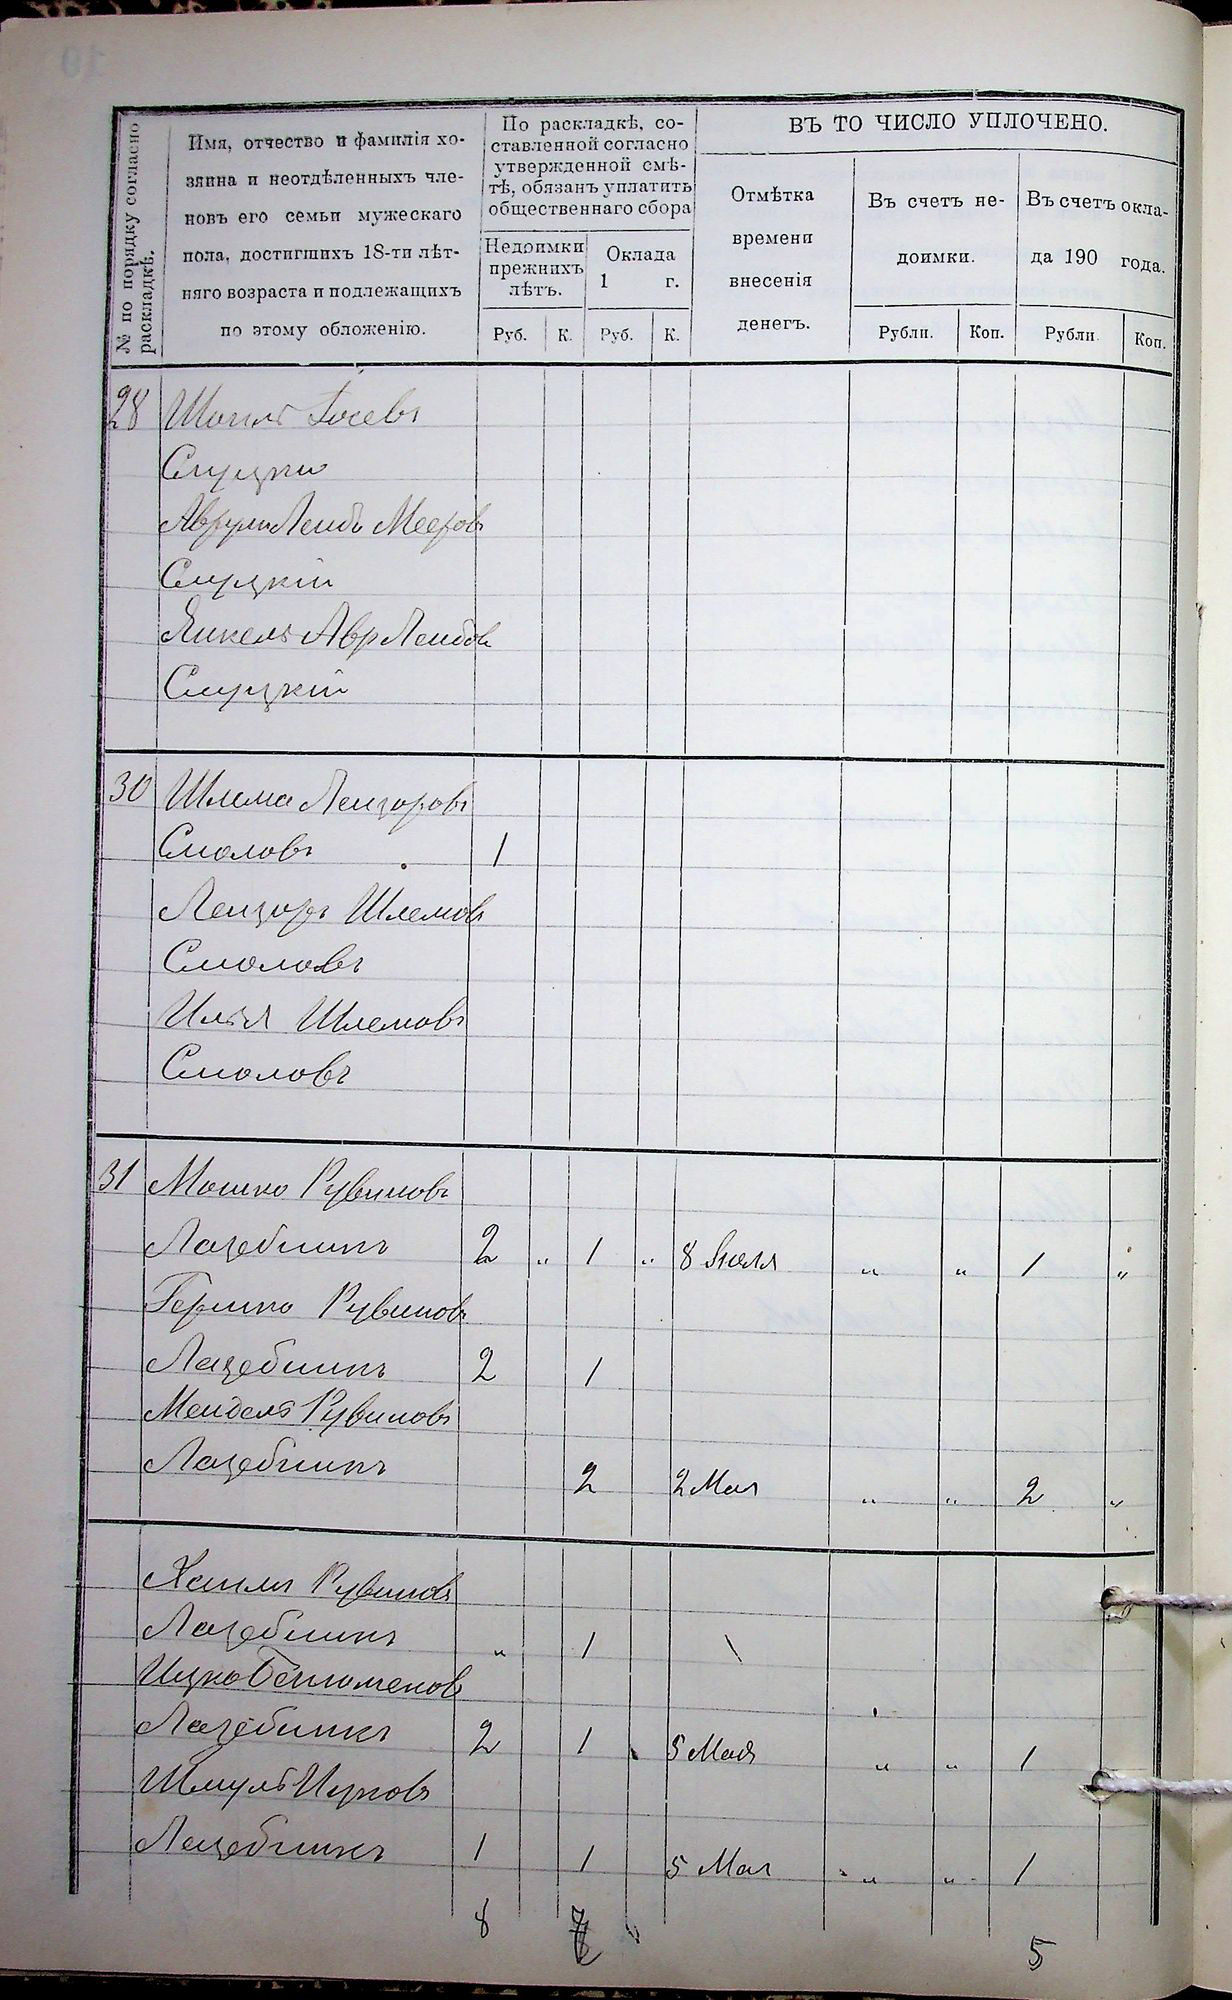 № по порядку согласно раскладкѣ.
Имя, отчество и фамилія хозяина и неотдѣленныхъ членовъ его семьи мужескаго пола, достигшихъ 18-ти лѣтняго возраста и подлежащихъ по этому обложенію.
По раскладкѣ, составленной согласно утвержденной смѣтѣ, обязанъ уплатить общественнаго сбора
Недоимки прежнихъ лѣтъ.
Оклада 1 г.
Руб. К. Руб. К.
ВЪ ТО ЧИСЛО УПЛОЧЕНО.
Отмѣтка времени внесенія денегъ.
Въ счетъ недоимки.
Въ счетъ оклада 190 года.
Рубли. Коп. Рубли Коп.
28 Іосевъ
Слуцкій
Мееров
Слуцкій
Янкель АврЛейбов
Слуцкій
30 Шлема Лейзоровъ
Смоловъ 1
Лейзоръ Шлемов
Смоловъ
Илья Шлемовъ
Смоловъ
31 Мошко Рувиновъ
Лазебникъ 2 " 1 " 8 Іюля " " 1 "
Гершко Рувиновъ
Лазебникъ 2 1
Мендель Рувиновъ
Лазебникъ 2 2 Мая " " 2 "
Хаимъ Рувиновъ
Лазебникъ " 1 \
Ицко
Лазебникъ 2 1 5 Мая " " 1
Шмуль Ицковъ
Лазебникъ 1 1 5 Мая " " 1
8 5